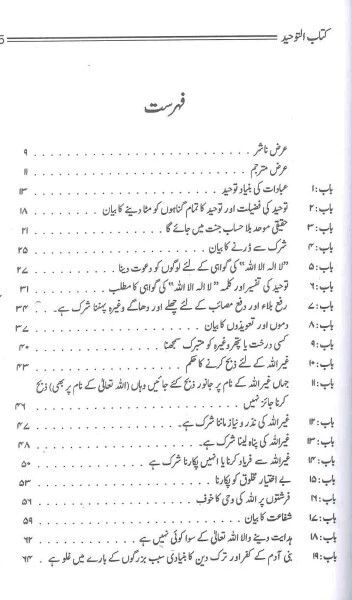 کتاب التوحید 5
فہرست
عرض ناشر ۹
عرض مترجم ۱۱
باب:۱ عبادات کی بنیاد توحید ۱۳
باب:۲ توحید کی فضیلت اور توحید کا تمام گناہوں کو مٹا دینے کا بیان ۱۸
باب:۳ حقیقی موحد بلا حساب جنت میں جائے گا ۲۱
باب:۴ شرک سے ڈرنے کا بیان ۲۵
باب:۵ "لا الہ الا اللہ" کی گواہی کے لئے لوگوں کو دعوت دینا ۲۷
باب:۶ توحید کی تفسیر اور کلمہ "لا الہ الا اللہ" کی گواہی کا مطلب ۳۱
باب:۷ رفع بلاء اور دفع مصائب کے لئے چھلے اور دھاگے وغیرہ پہننا شرک ہے۔ ۳۴
باب:۸ دموں اور تعویذوں کا بیان ۳۷
باب:۹ کسی درخت یا پتھر وغیرہ کو متبرک سمجھنا ۴۰
باب:۱۰ غیر اللہ کے لئے ذبح کرنے کا حکم ۴۳
باب:۱۱ جہاں غیر اللہ کے نام پر جانور ذبح کئے جائیں وہاں (اللہ تعالیٰ کے نام پر بھی) ذبح
کرنا جائز نہیں ۴۶
باب:۱۲ غیر اللہ کی نذر و نیاز ماننا شرک ہے۔ ۴۷
باب:۱۳ غیر اللہ کی پناہ لینا شرک ہے ۴۸
باب:۱۴ غیر اللہ سے فریاد کرنا یا انہیں پکارنا شرک ہے ۵۰
باب:۱۵ بے اختیار مخلوق کو پکارنا ۵۳
باب:۱۶ فرشتوں پر اللہ کی وحی کا خوف ۵۶
باب:۱۷ شفاعت کا بیان ۵۹
باب:۱۸ ہدایت دینے والا اللہ تعالیٰ کے سوا کوئی نہیں ہے ۶۲
باب:۱۹ بنی آدم کے کفر اور ترک دین کا بنیادی سبب بزرگوں کے بارے میں غلو ہے ۶۴